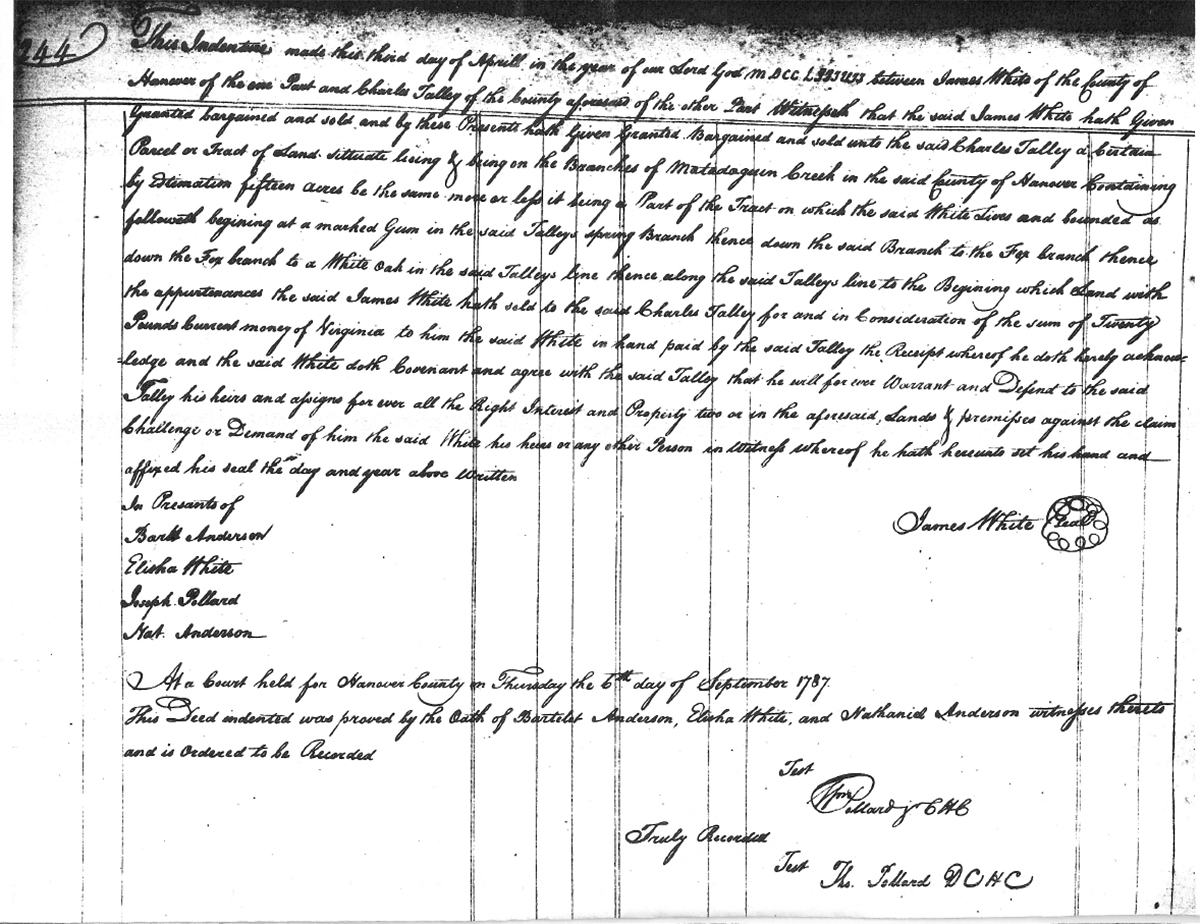 244
This Indenture made this third day of Aprill in the year of our Lord God MDCC between James White of the County of
Hanover of the one Part and Charles Talley of the County aforesaid of the other Part Witnesseth that the said James White hath Given
Granted bargained and sold and by these Presents hath Given Granted Bargained and sold unto the said Charles Talley a Certain
Parcel or Tract of Land situate lieing & being on the Branches of Matadaquin Creek in the said County of Hanover Containing
by Estimation fifteen acres be the same more or less it being a Part of the Tract on which the said White Lives and bounded as
followeth begining at a marked Gum in the said Talleys spring Branch thence down the said Branch to the Fox branch thence
down the Fox branch to a White Oak in the said Talleys line thence along the said Talleys line to the Begining which Land with
the appurtenances the said James White hath sold to the said Charles Talley for and in Consideration of the sum of Twenty
Pounds Current money of Virginia to him the said White in hand paid by the said Talley the Receipt whereof he doth hereby acknow-
=ledge and the said White doth Covenant and agree with the said Talley that he will for ever Warrant and Defend to the said
Talley his heirs and assigns for ever all the Right Interest and Property two or in the aforesaid Lands & premisses against the claim
Challenge or Demand of him the said White his heirs or any other Person in Witness whereof he hath hereunto set his hand and
affixed his seal the day and year above Written
In Presants of
Bartt Anderson
James White Seal
Elisha White
Joseph Pollard
Nat. Anderson
At a Court held for Hanover County on Thursday the 6th day of September 1787.
This Deed indented was proved by the Oath of Bartelot Anderson, Elisha White, and Nathaniel Anderson witnesses thereto
and is Ordered to be Recorded
Test
Wm Pollard jr CHC
Truly Recorded
Test Tho. Pollard DCHC